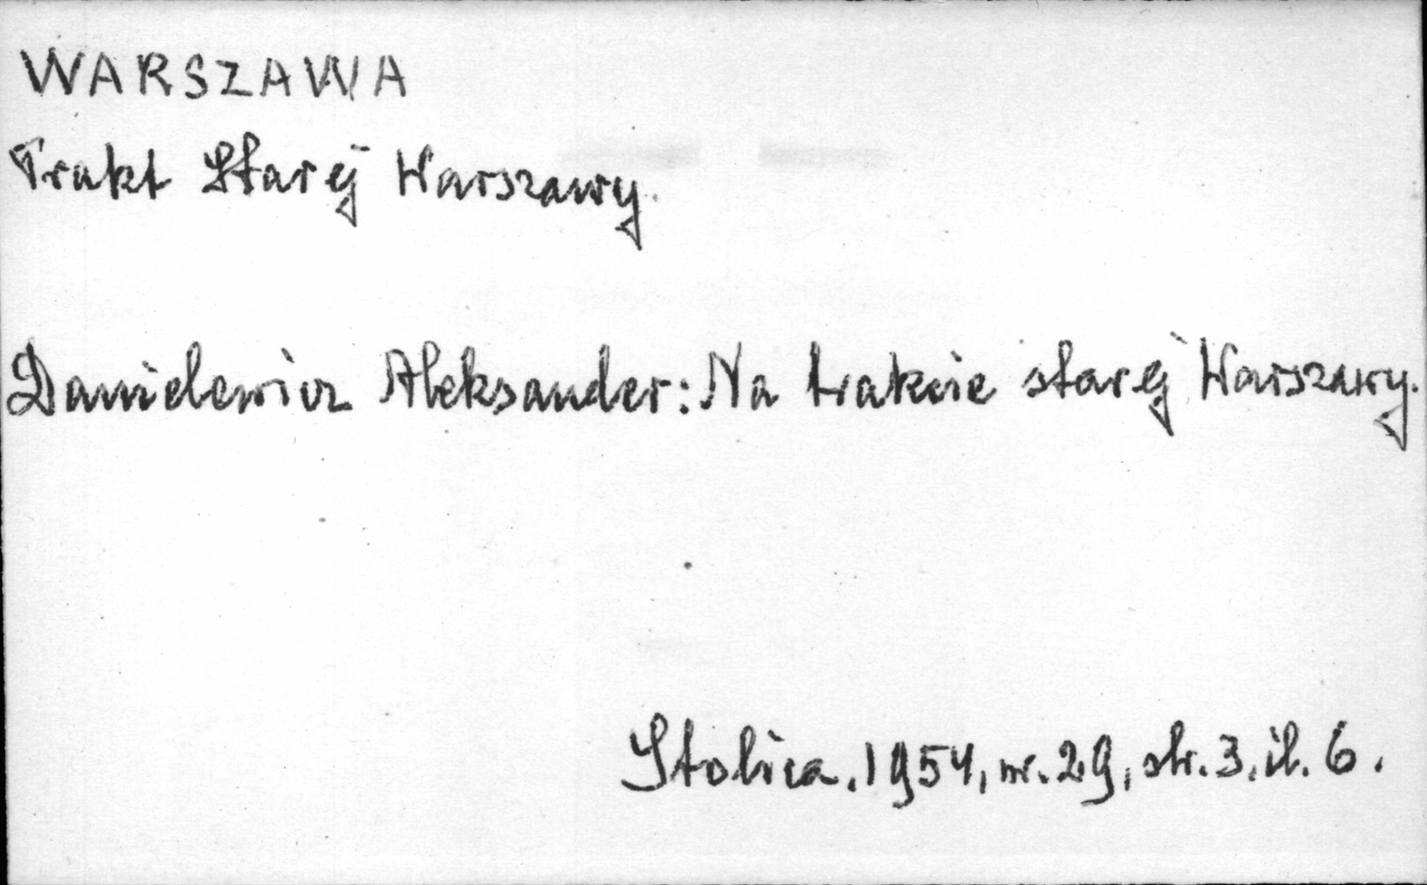 WARSZAWA
Trakt Starej Warszawy.
Danielewicz Aleksander: Na trakcie starej Warszawy.
Stolica. 1954, nr. 29, str. 3. il. 6.